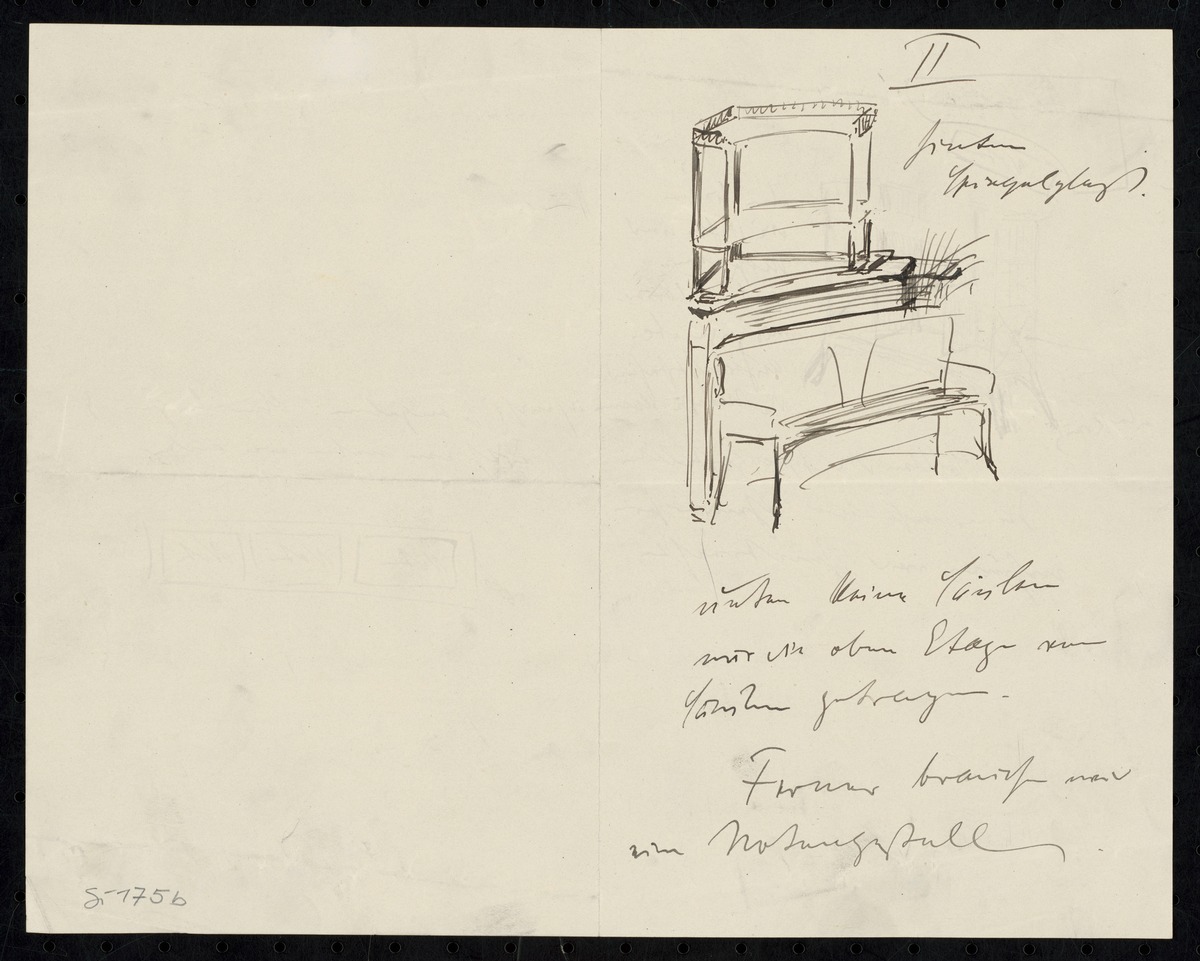 II
hinten
Spiegelglas.
unten keine Säulen
nur die obere Etage von
Säulen getragen.
Ferner brauchen wir
ein Notengestell.
S-175b